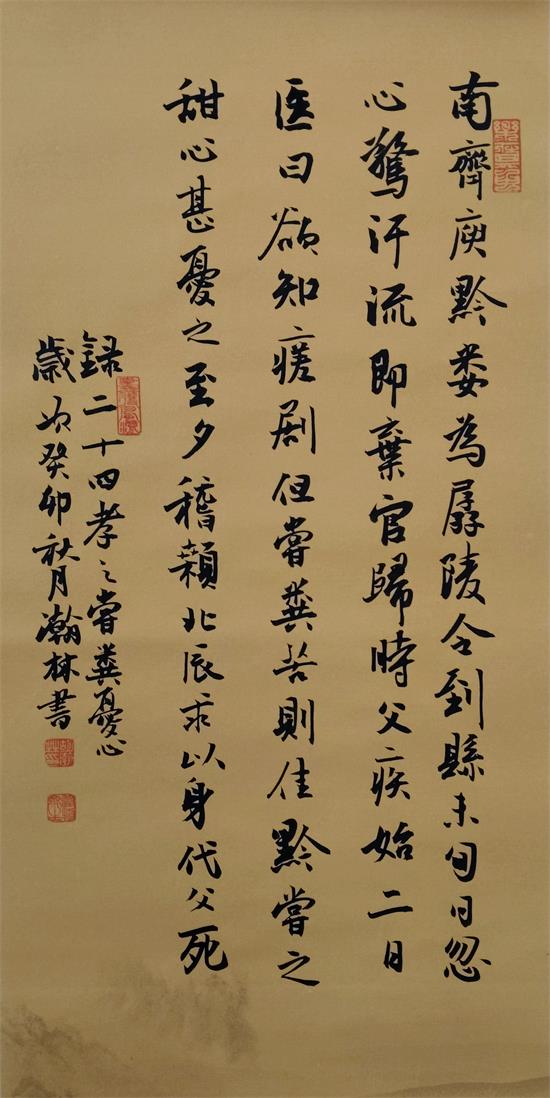 南齊庾黔婁為孱陵令到縣未旬日忽
心驚汗流即棄官歸時父疾始二日
医曰欲知瘥剧但嘗糞苦則佳黔嘗之
甜心甚憂之至夕稽顙北辰求以身代父死
録二十四孝之嘗糞憂心
歲次癸卯秋月瀚林書